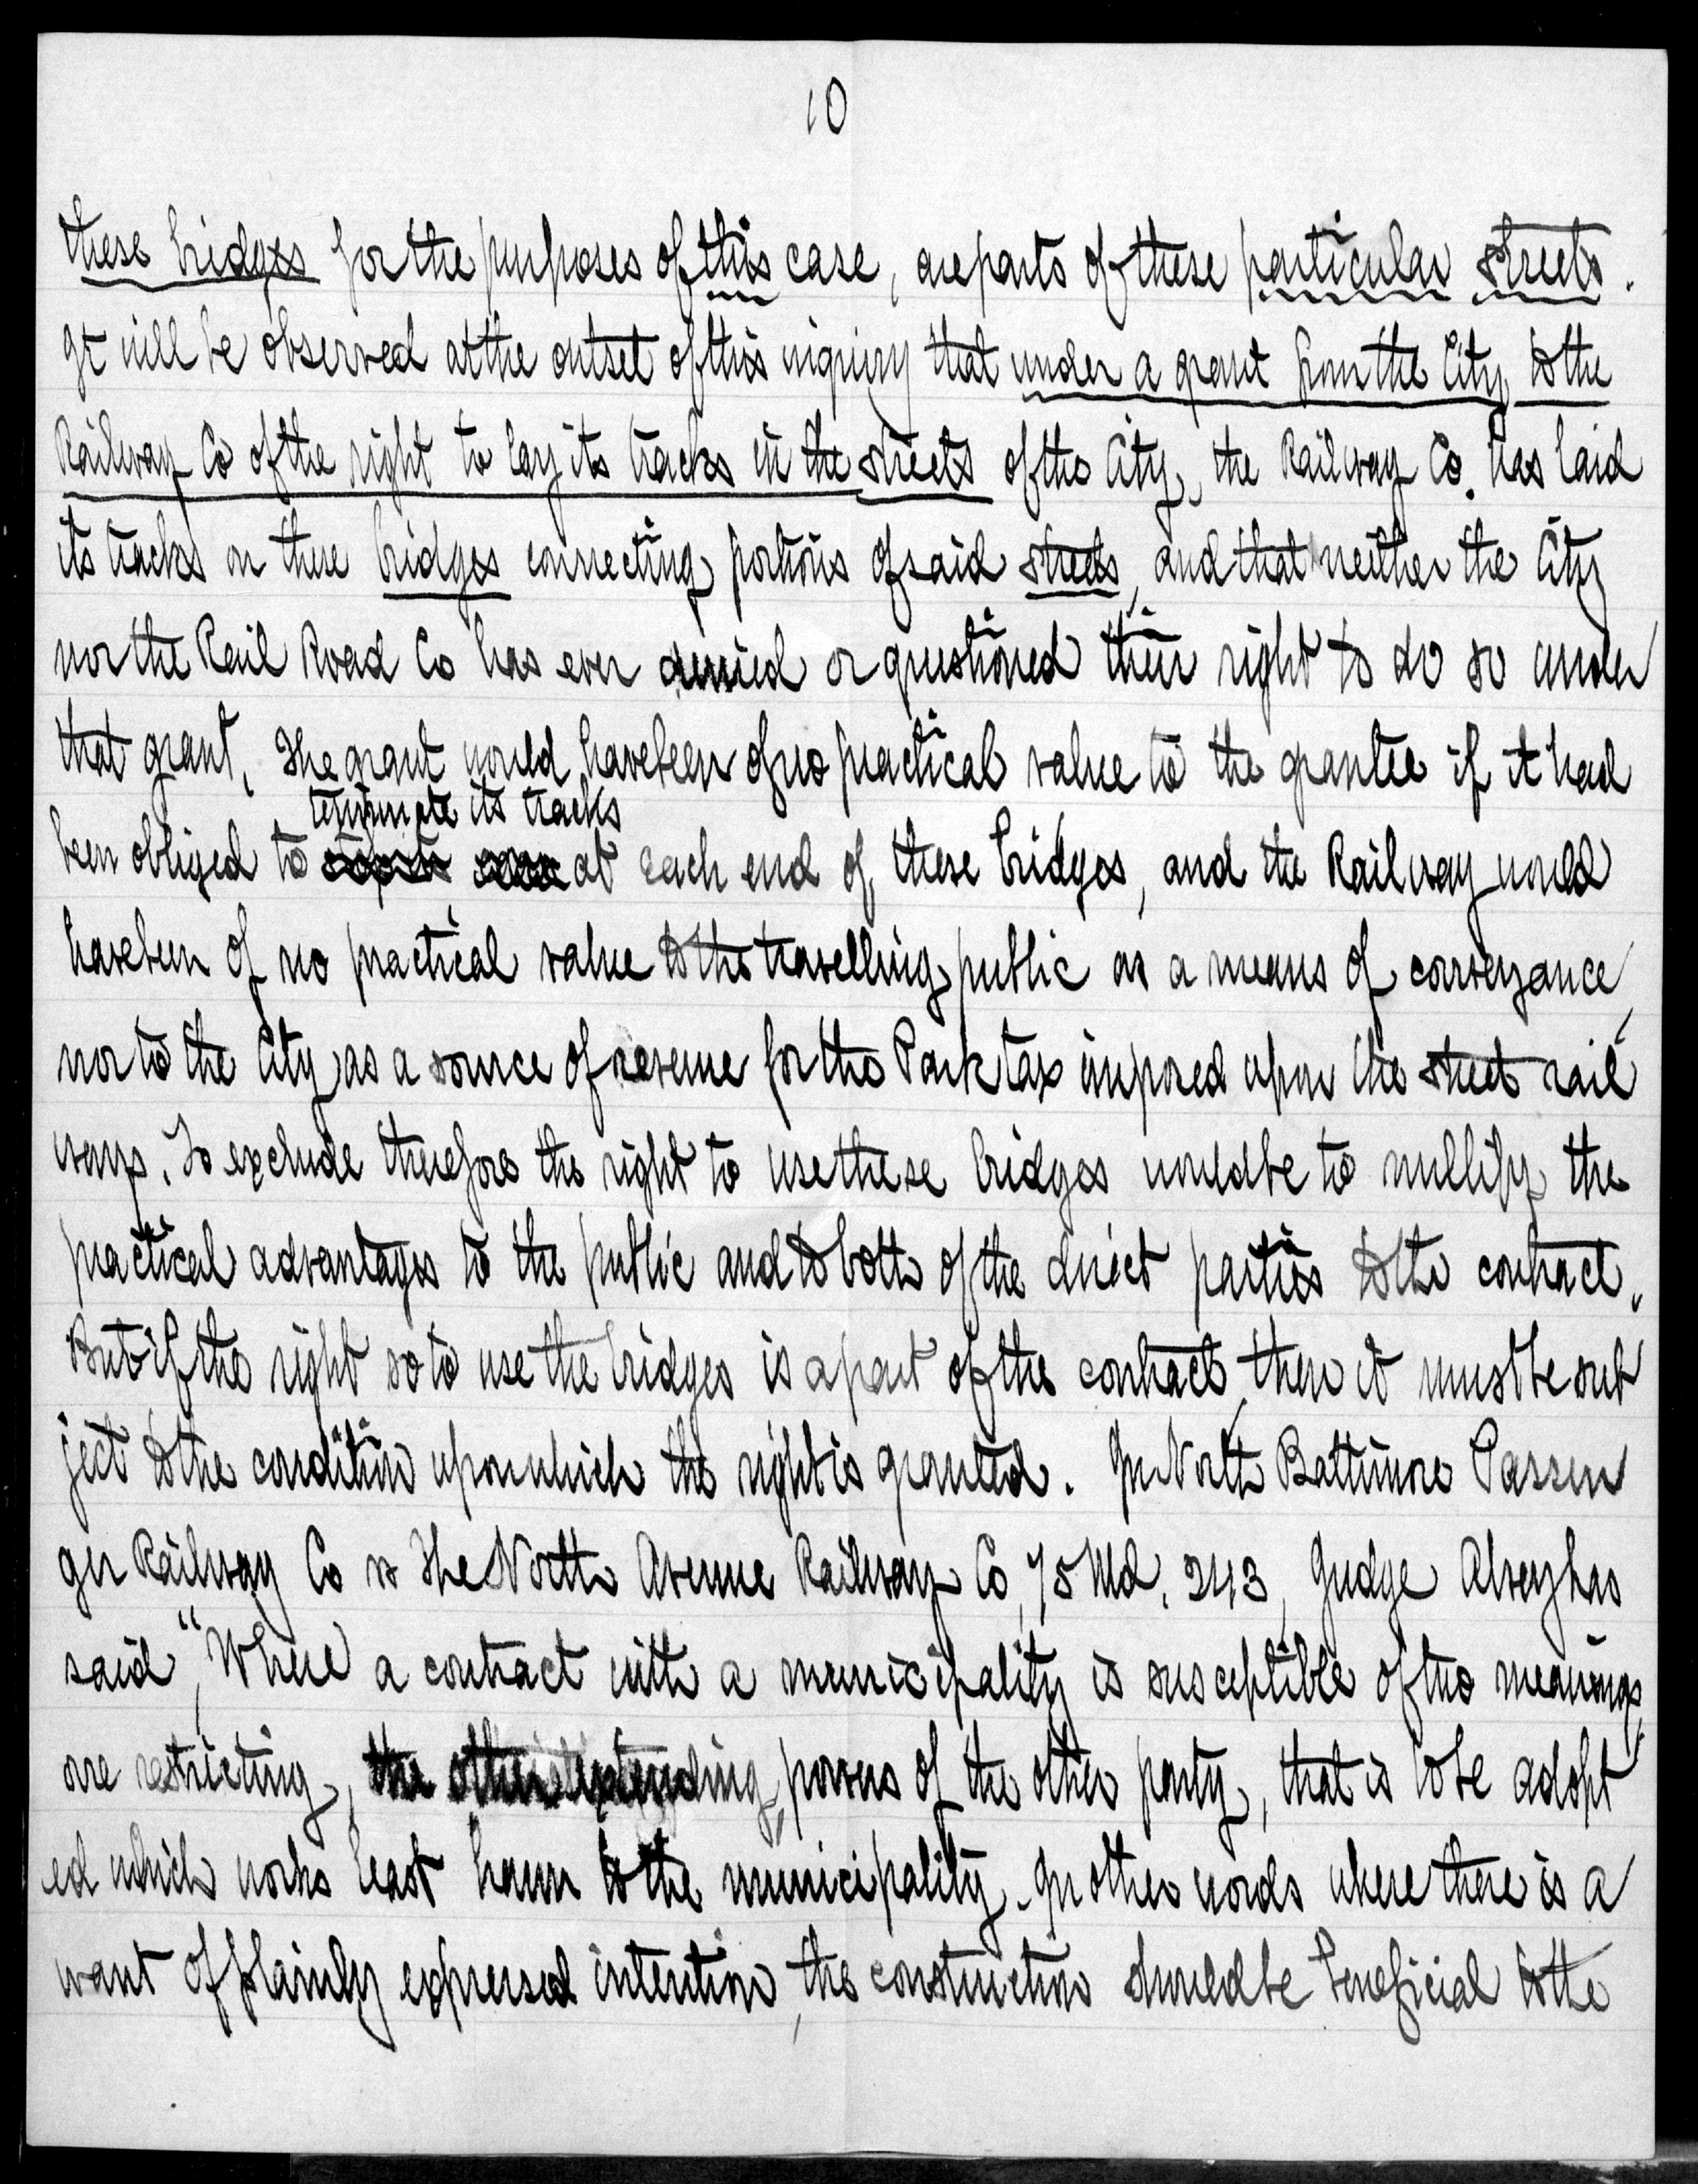 10
these bridges for the purposes of this case, are parts of these particular streets.
It will be observed at the outset of this inquiry that under a grant from the City to the
Railway Co of the right to lay its tracks in the streets of the City, the Railway Co. has laid
its tracks on these bridges connecting portions of said streets, and that neither the City
nor the Rail Road Co has ever denied or questioned their right to do so under
that grant. The grant would have been of no practical value to the grantee if it had
terminate its tracks
been obliged to at each end of these bridges, and the Railway would
have been of no practical value to the travelling public as a means of conveyance,
nor to the City as a source of revenue for the Park tax imposed upon the street rail
ways. To exclude therefore the right to use these bridges would be to nullify the
practical advantages to the public and to both of the direct parties to the contract.
But if the right so to use the bridges is a part of the contract, then it must be sub
ject to the condition upon which the right is granted. In North Baltimore Passen
ger Railway Co vs The North Avenue Railway Co, 75 Md. 243, Judge Alvey has
said, "Where a contract with a municipality is susceptible of two meanings,
one restricting, the other extending, powers of the other party, that is to be adopt
ed which works least harm to the municipality. In other words where there is a
want of plainly expressed intention, the construction should be beneficial to the